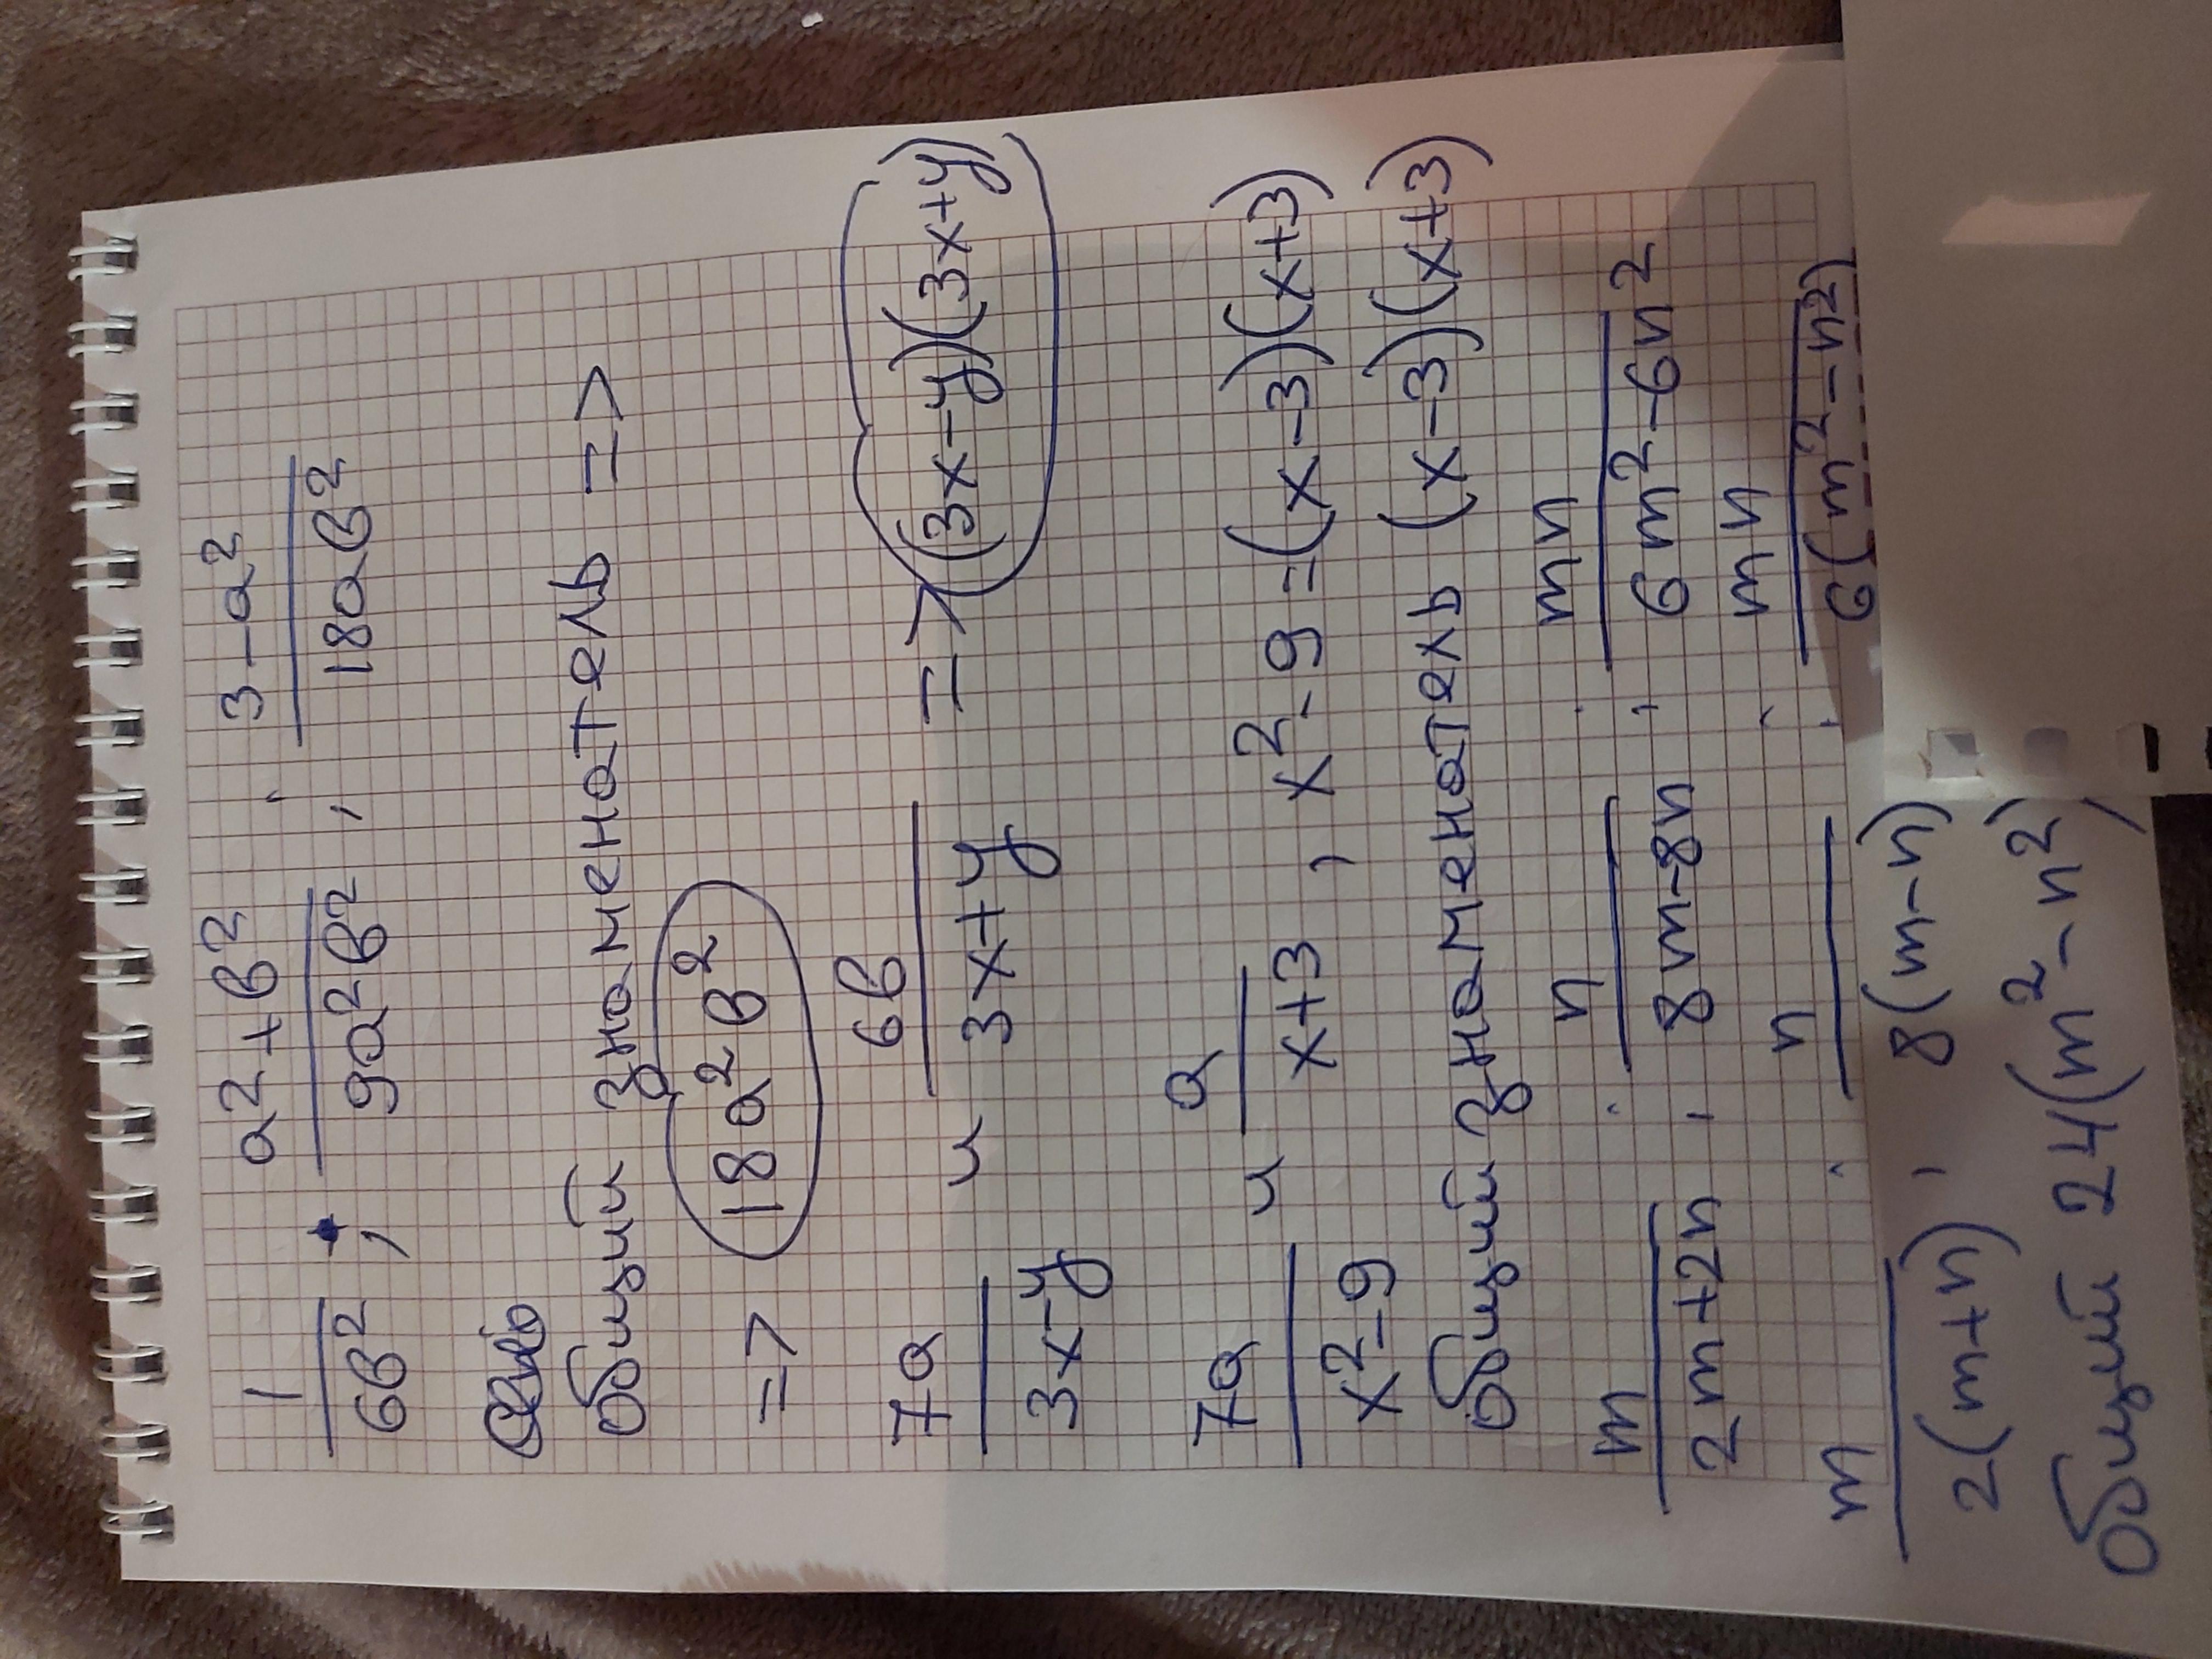 1 a2+b² 3-a²
6b² , 9a²b² ; 18ab²
общий знаменатель =>
=> 18a²b²
7a 6b
3x-y и 3x+y => (3x-y)(3x+y)
7a a
x²-9 и x+3 , x²-9=(x-3)(x+3)
общий знаменатель (x-3)(x+3)
m n mn
2m+2n ; 8m-8n ; 6m²-6n²
m n mn
2(m+n) ; 8(m-n) ; 6(m²-n²)
общий 24(m²-n²)